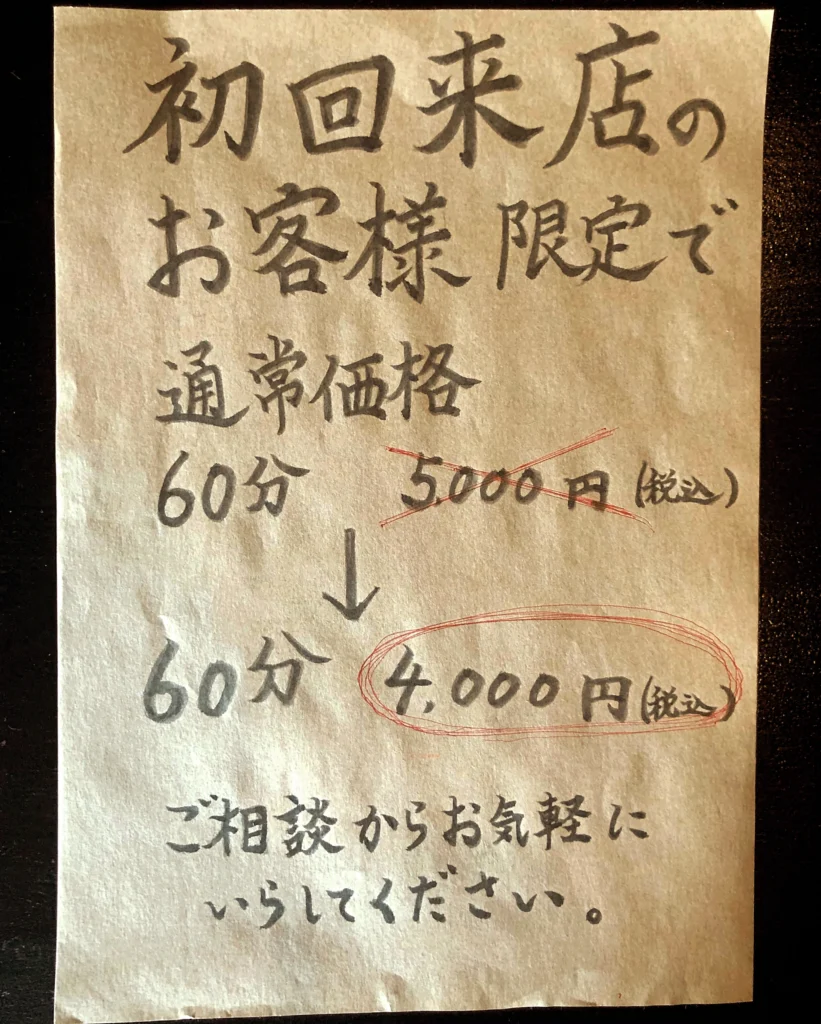 初回来店の
お客様 限定で
通常価格
60分 5,000円(税込)
↓
60分 4,000円(税込)
ご相談からお気軽に
いらしてください。